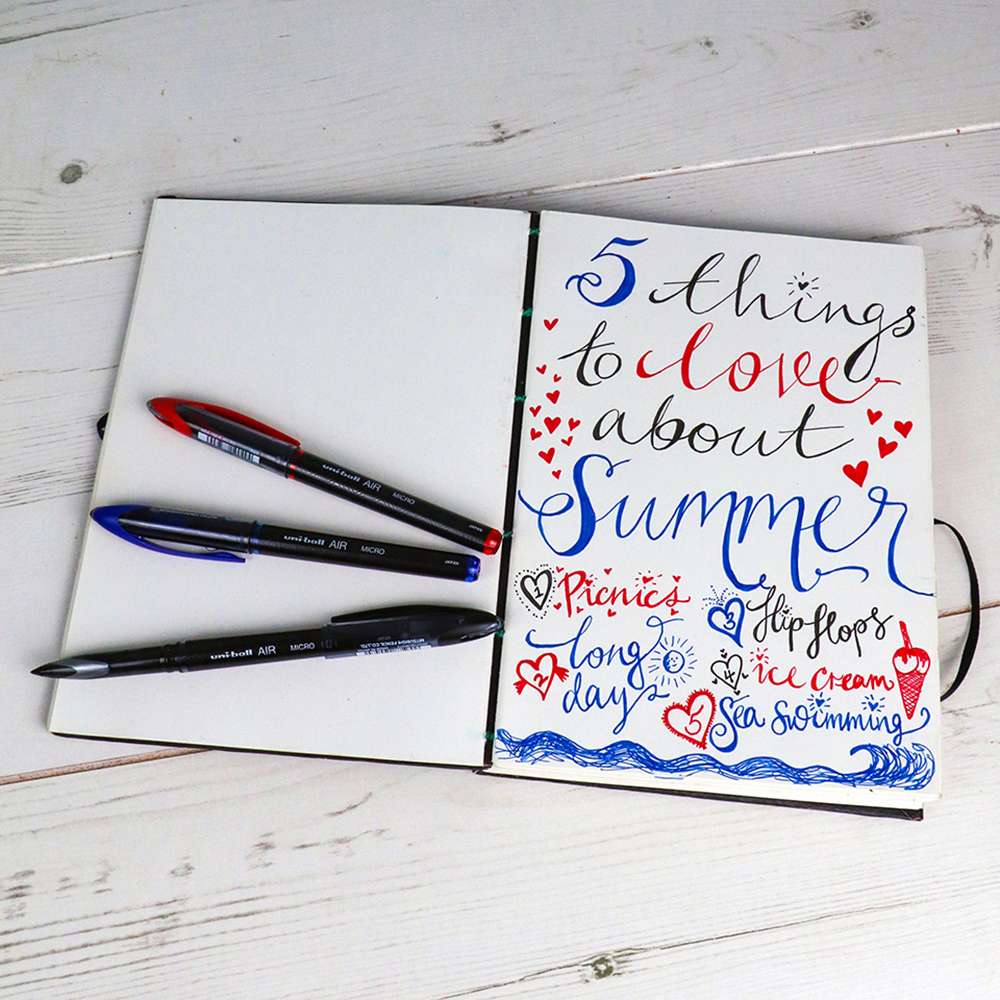 5 things
to love
about
Summer
1 Picnics
2 long
days
3 flip flops
4 ice cream
5 Sea Swimming
uni-ball AIR MICRO
uni-ball AIR MICRO
uni-ball AIR MICRO